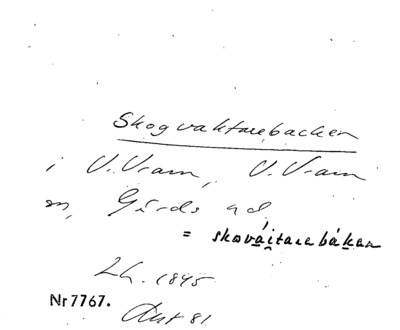 Skogvaktarebacken
i V. Vram, V. Vram
sn, Gärds hd
= skovaitarebákan
Lh. 1845
Nr 7767.
81